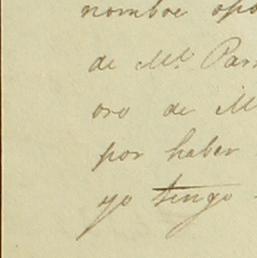 nombre opo
de Mr. Par
oro de M
por haber
yo tengo